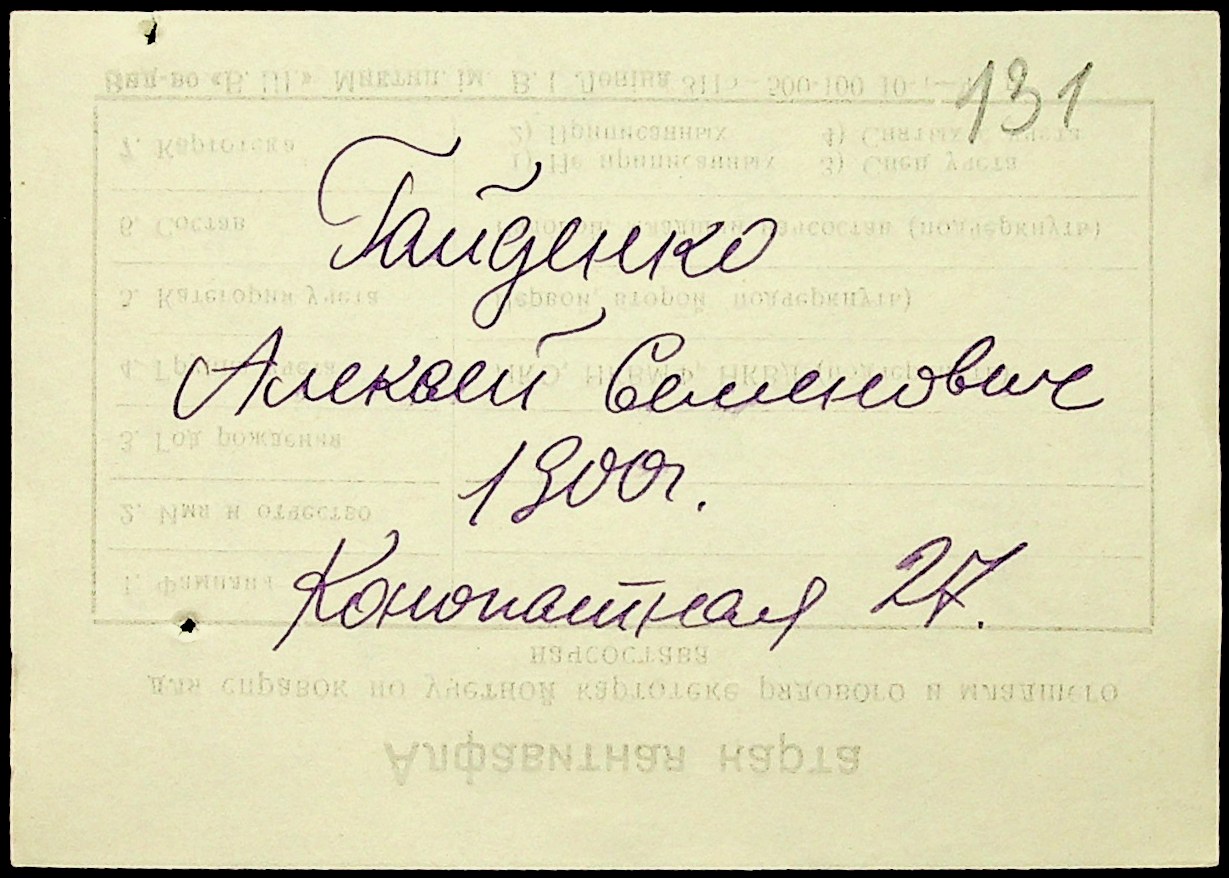 131
Гайденко
Алексей Семенович
1900г.
Конопатная 27.